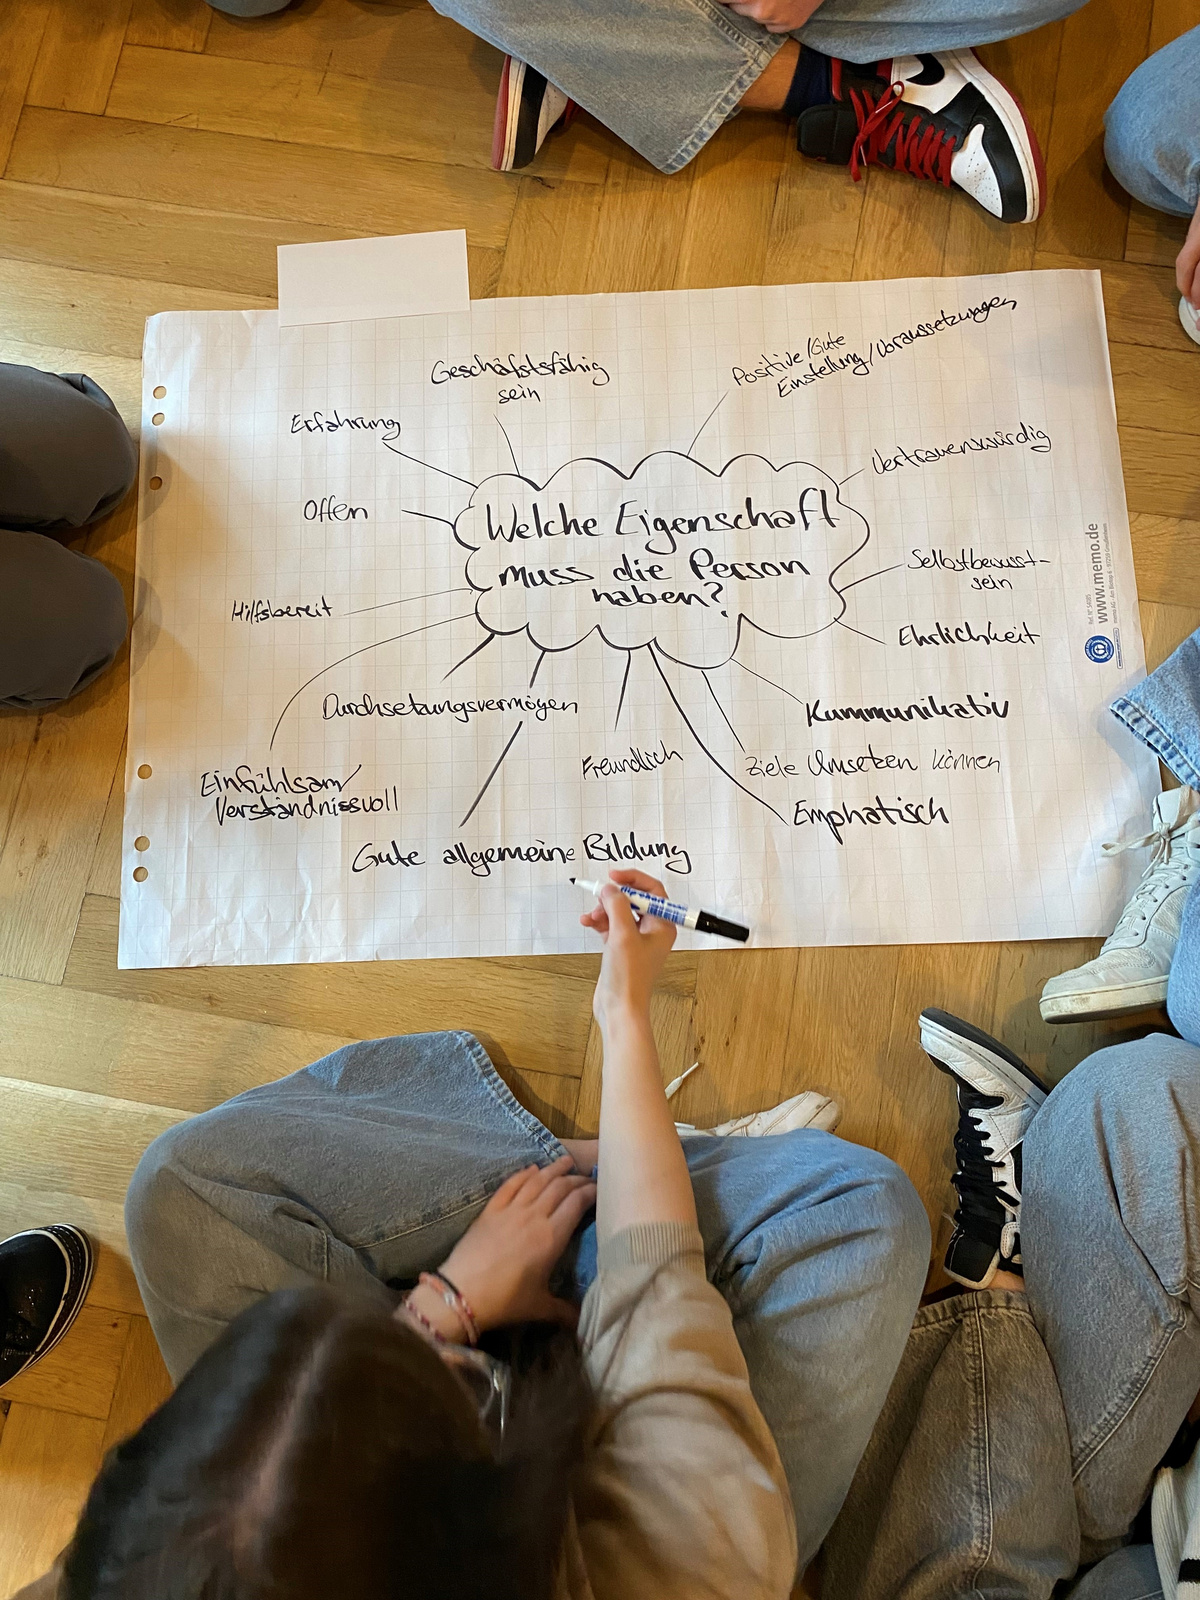 Geschäftsfähig
sein
Positive/Gute
Einstellung/Voraussetzungen
Erfahrung
Vertrauenswürdig
Offen
Welche Eigenschaft
muss die Person
haben?
Selbstbewusst-
sein
Hilfsbereit
Ehrlichkeit
Durchsetzungsvermögen
Kummunikativ
Freundlich
Ziele Umsetzen können
Einfühlsam/
Verständnissvoll
Emphatisch
Gute allgemeine Bildung
www.memo.de